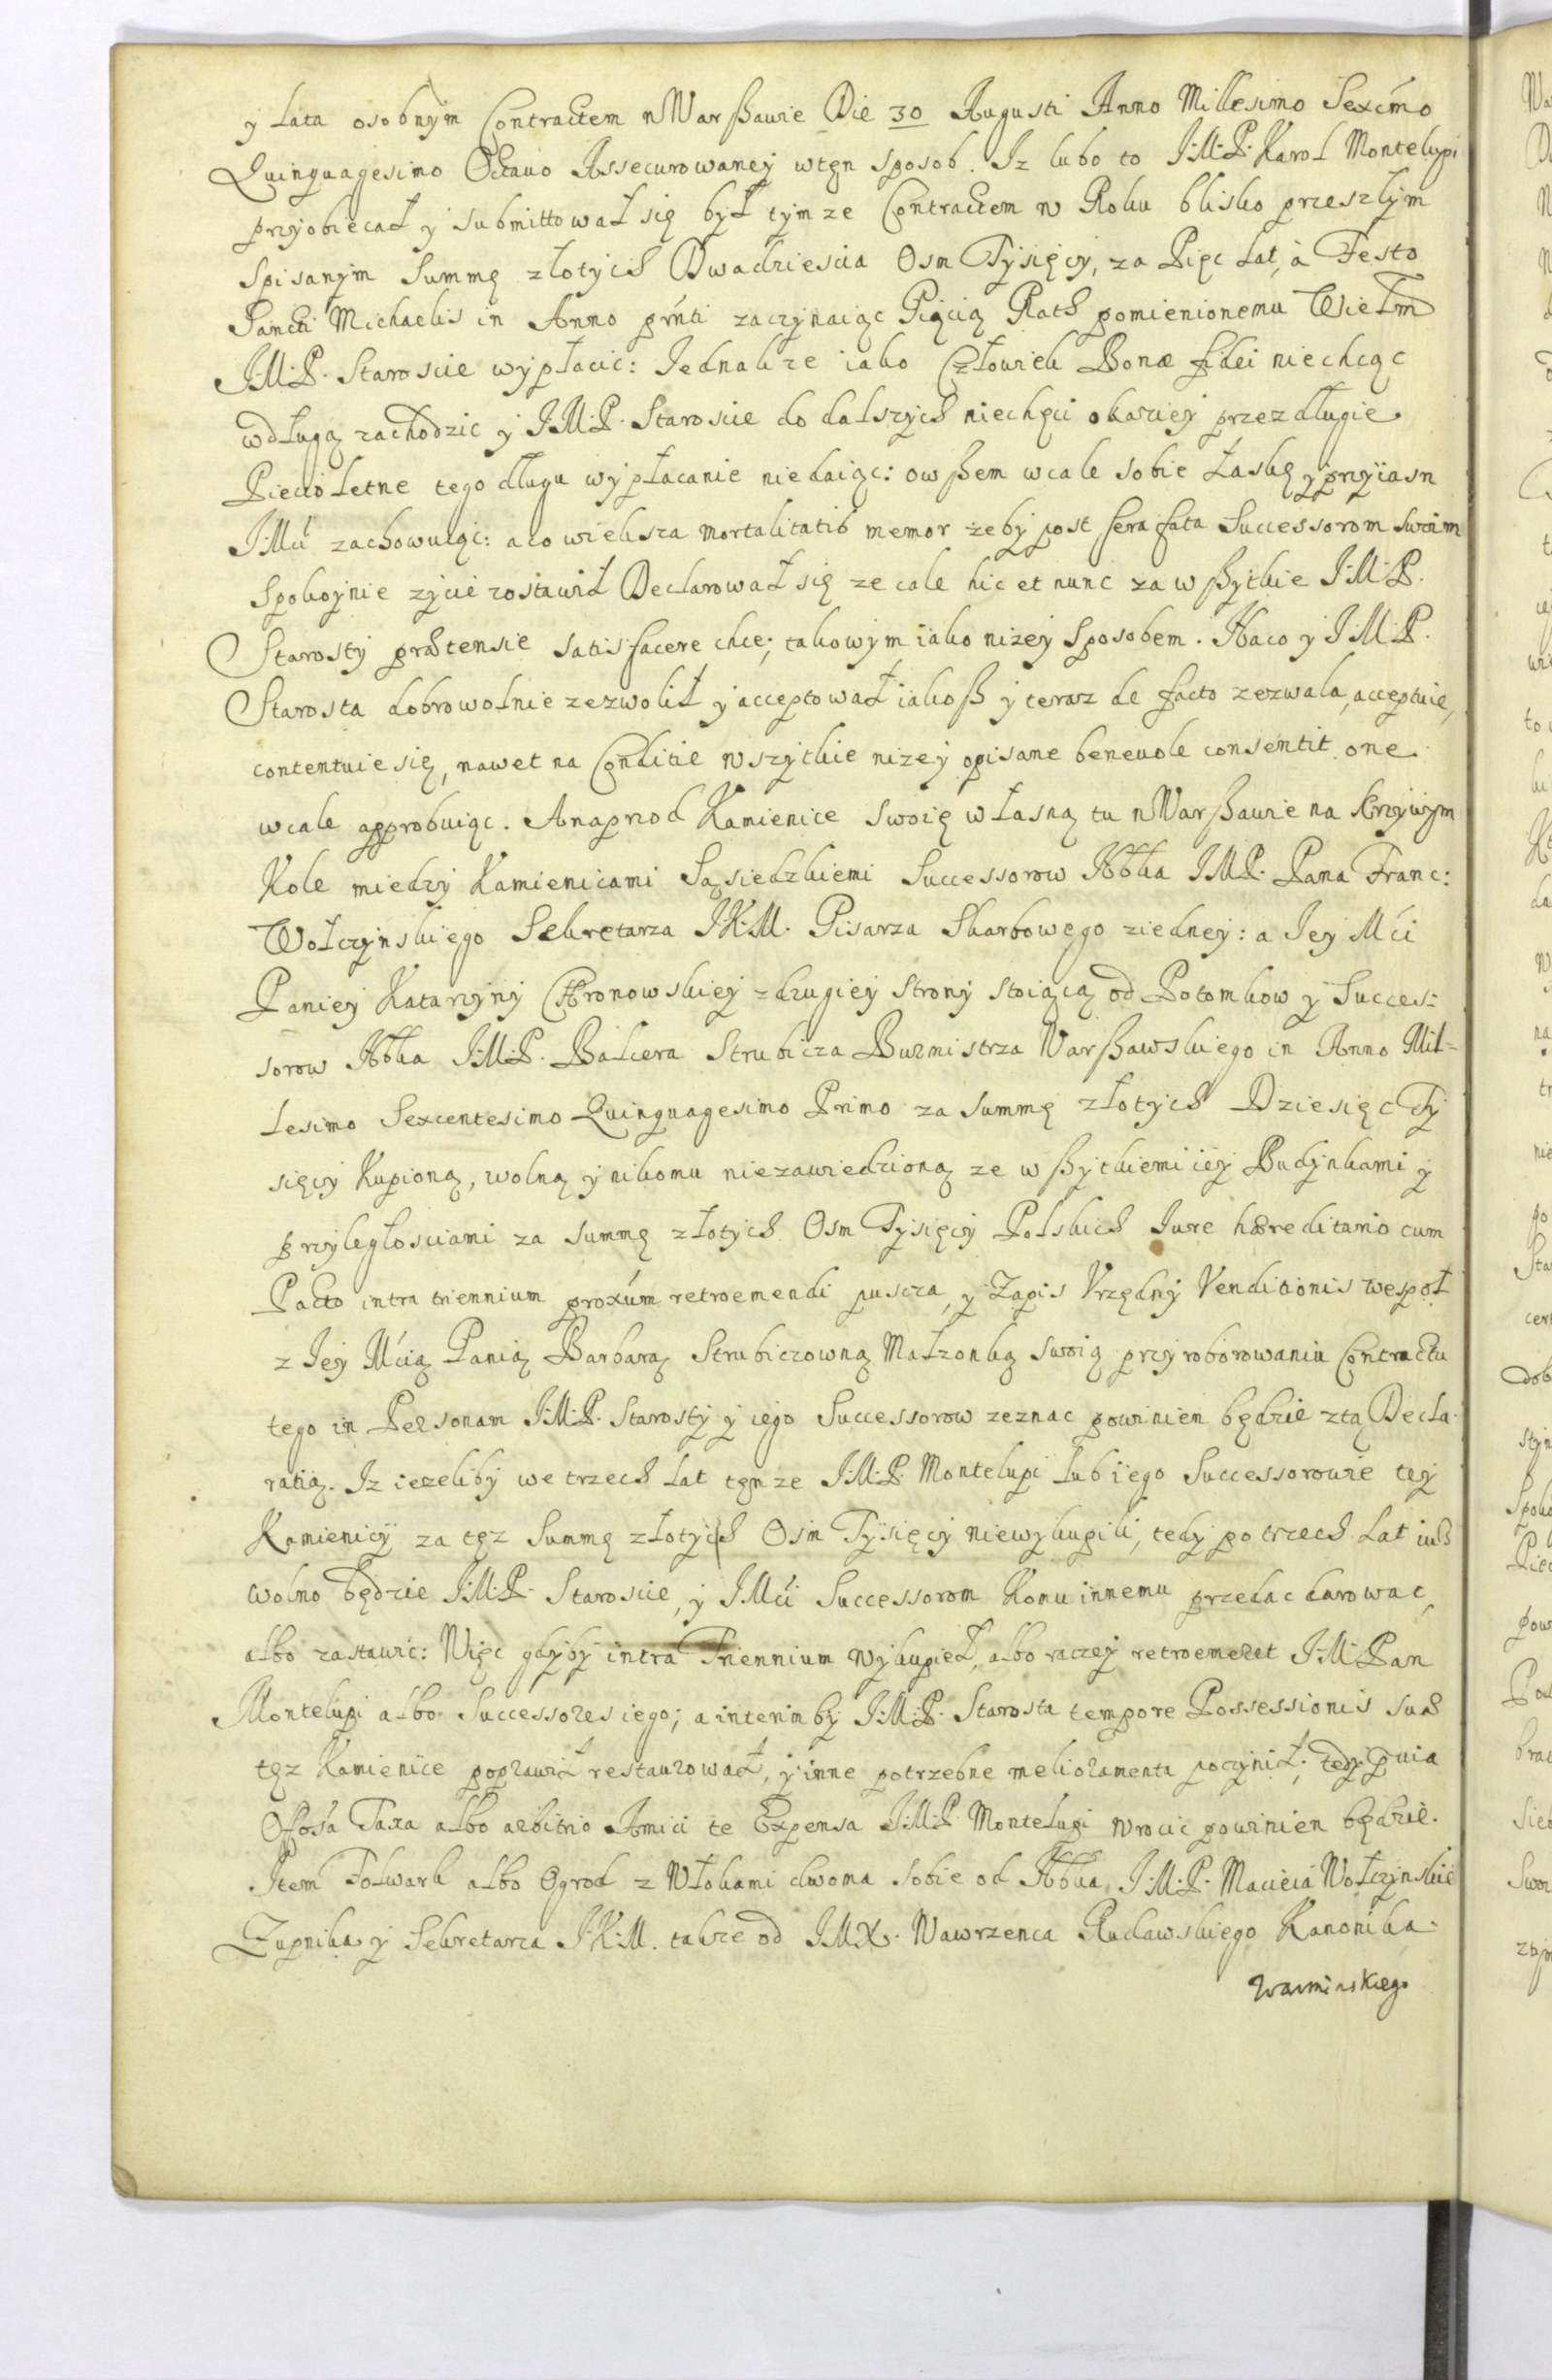 y lata osobnym Contractem w Warszawie Die 30 Augusti Anno Millesimo Sexcmo
Quinquagesimo Octavo Assecurowaney wten sposob. Iz lubo to J:M:P. Karol Montelupi
przyobiecał y submittował się był tymze Contractem w Roku blisko przeszłym
Spisanym Summę złotych Dwadziescia Osm Tysięcy, za Pięc Lat, à Festo
Sancti Michaelis in Anno prnti zaczynaiąc Piącią Rath pomienionemu Wielm
J:M:P. Staroscie wypłacic: Iednakze iako Człowiek Bonæ fidei niechcąc
wdługą zachodzic y J:M:P. Staroscie do dalszych niechęci okaziey przez długie
Piecioletne tego długu wypłacanie niedaiąc: owszem wcale sobie Łaskę y przyiasn
JMci zachowuiąc: a co wieksza mortalitatis memor zeby post sera fata Successorom swoim
Spokoynie zycie zostawił Declarował się ze cale hic et nunc za wszytkie J:M:P.
Starosty prætensie satisfacere chce; takowym iako nizey Sposobem. Na co y J:M:P.
Starosta dobrowolnie zezwolił y acceptował iakosz y teraz de facto zezwala, acceptuie,
contentuie się, nawet na Conditie wszytkie nizey opisane benevole consentit one
wcale approbuiąc. A naprzod Kamienice swoię własną tu w Warszawie na Krzywym
Kole miedzy Kamienicami Sąsiedzkiemi Successorow Nbka JMP. Pana Franc:
Wołczynskiego Sekretarza J.K.M. Pisarza Skarbowego ziedney: a Iey Mci
Paniey Katarzyny Chronowskiey z drugiey strony stoiącą od Potomkow y Succes:
sorow Nbka J:M:P. Balcera Strubicza Burmistrza Warszawskiego in Anno Mil=
lesimo Sexcentesimo Quinquagesimo Primo za Summę złotych Dziesięc Ty
sięcy Kupioną, wolną y nikomu niezawiedzioną ze wszytkiemi iey Budynkami y
przyległosciami za Summę złotych Osm Tysięcy Polskich Iure hæreditario cum
Pacto intra triennium proxúm retroemendi puscza, y Zapis Vrzędny Venditionis wespoł
z Iey Mcią Panią Barbarą Strubiczowną Małzonką swoią przy roborowaniu Contractu
tego in Personam J:M:P. Starosty y iego Successorow zeznac powinien będzie z tą Decla-
ratią. Iz iezeliby we trzech lat tenze J:M:P. Montelupi lub iego Successorowie tey
Kamienicy za tęz Summę złotych Osm Tysięcy niewykupili, tedy po trzech Lat iusz
wolno będzie J:M:P. Staroscie, y JMci Successorom Komu innemu przedac darowac,
albo zastawic: Więc gdyby intra Triennium wykupieł, albo raczey retroemeret J:M:Pan
Montelupi albo Successores iego; a interim by J:M:P. Starosta tempore Possessionis suæ
tęz Kamienice poprawił restaurował, y inne potrzebne melioramenta poczynił; tedy prvia
Offosa Taxa albo arbitrio Amici te Expensa J:M:P. Montelupi wrocic powinien będzie.
Item Folwark albo Ogrod z Włokami dwoma sobie od Nbka J:M:P. Macieia Wołczynskie
Zupnika y Sekretarza J.K.M. takze od J.M.X. Wawrzenca Rudawskiego Kanonika
Warminskiego